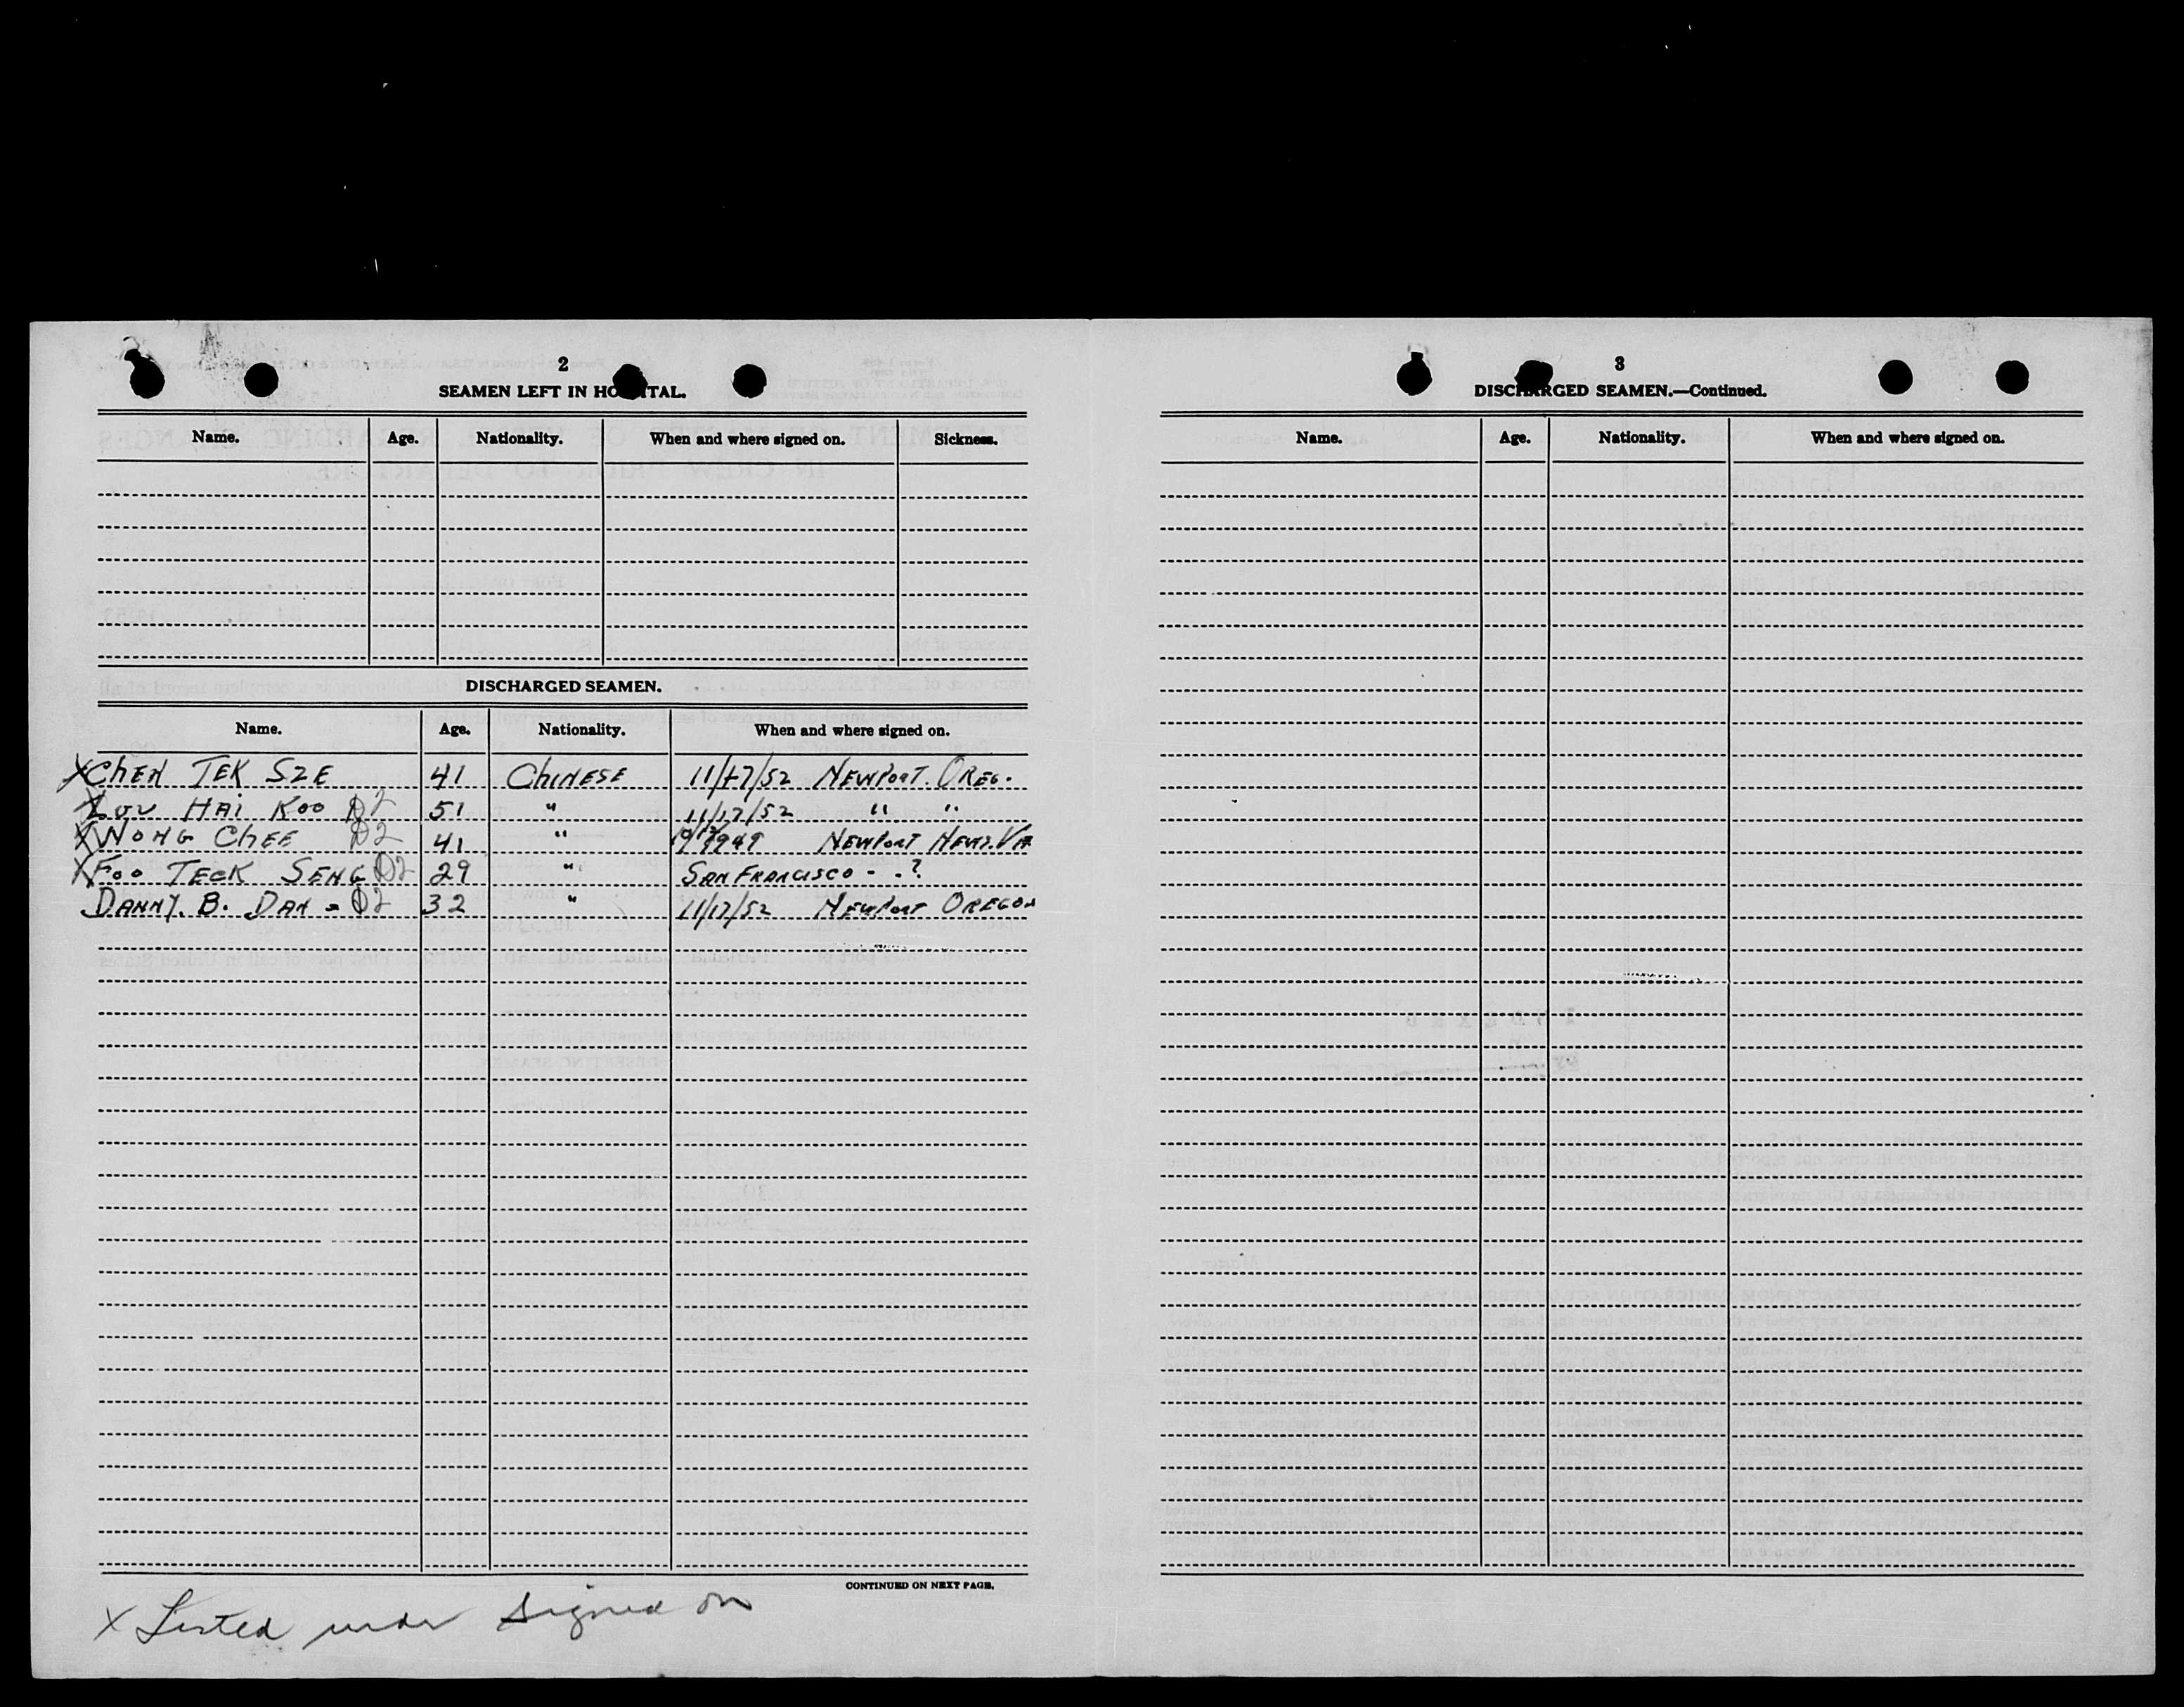 2
SEAMEN LEFT IN HOSPITAL.
Name. Age. Nationality. When and where signed on. Sickness.
DISCHARGED SEAMEN.
Name. Age. Nationality. When and where signed on.
X CHEN TEK SZE 41 CHINESE 11/17/52 NEWPORT. OREG.
X LOU HAI KOO D2 51 " 11/17/52 " "
X WONG CHEE D2 41 " 1949 NEWPORT NEWS. VA
X FOO TECK SENG D2 29 " SAN FRANCISCO - . ?
DANNY. B. DAN = D2 32 " 11/17/52 NEWPORT OREGON
CONTINUED ON NEXT PAGE.
X Listed under signed on
3
DISCHARGED SEAMEN.—Continued.
Name. Age. Nationality. When and where signed on.